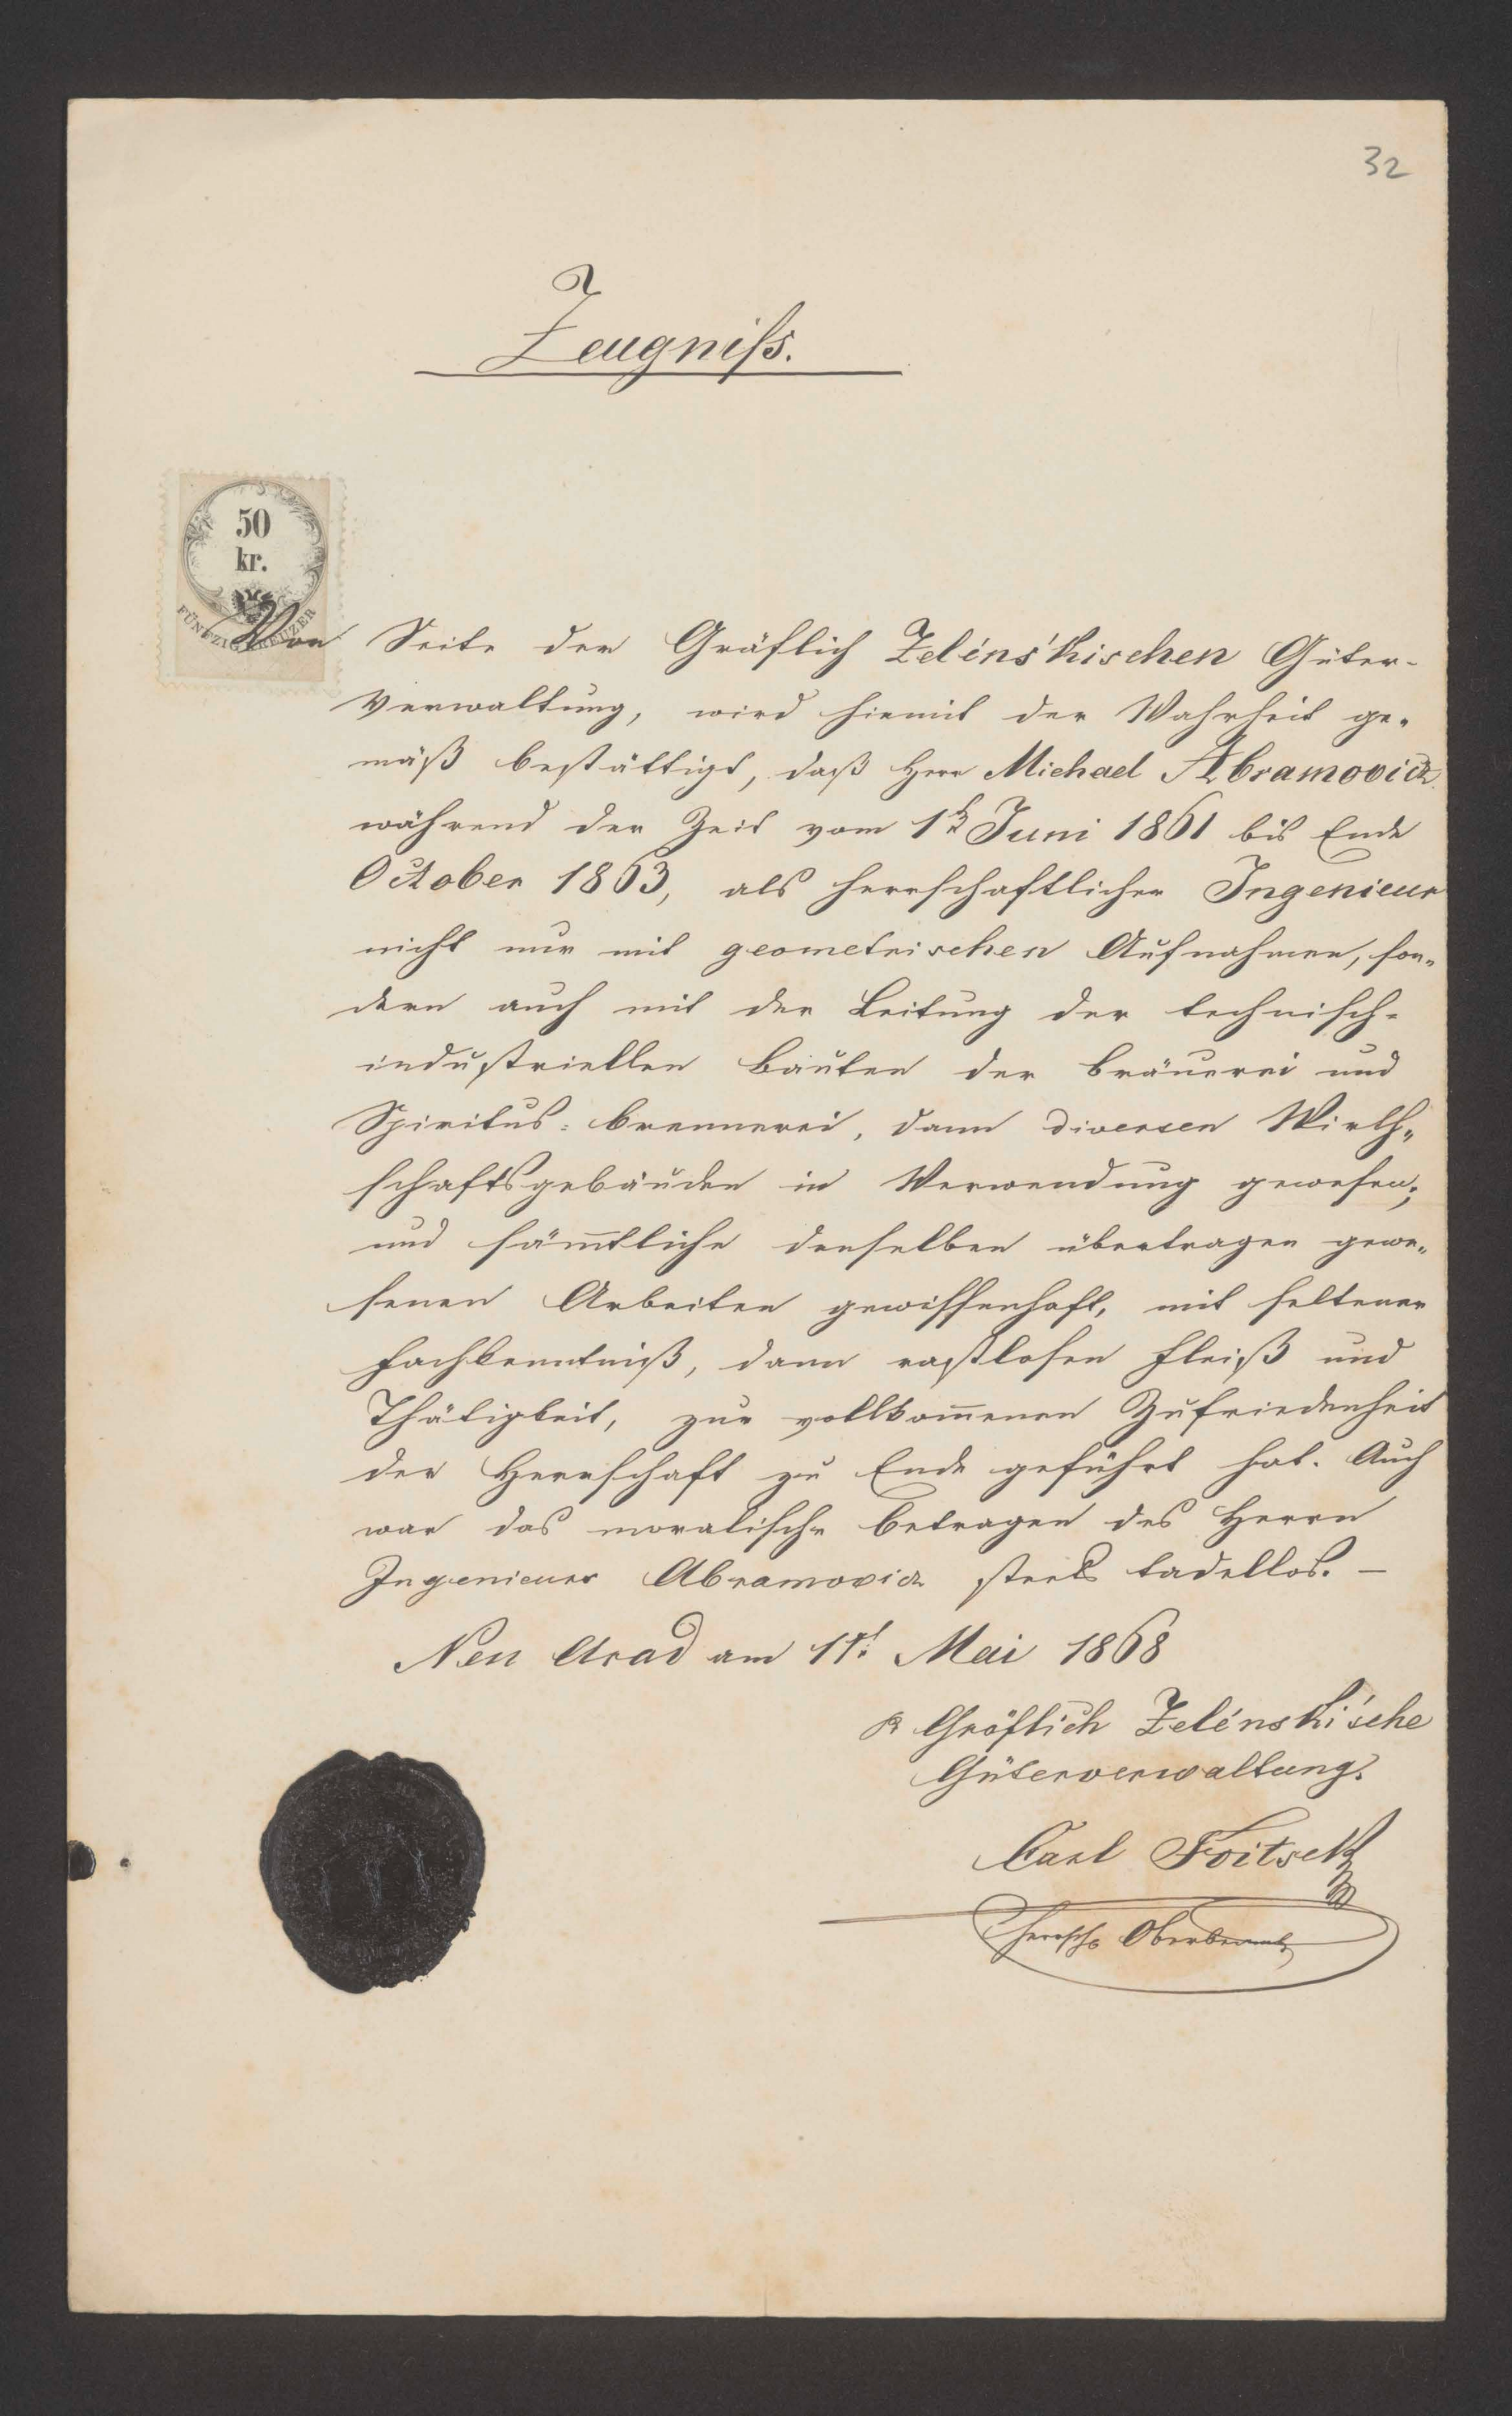 32
Zeugniſs.
50
kr.
FÜNFZIG KREUZER
Von Seite der Gräflich Zeléns'kischen Güter-
Verwaltung, wird hiemit der Wahrheit ge-
mäß bestättigt, daß Herr Michael Abramovics
während der Zeit vom 1t Juni 1861 bis Ende
October 1863, als herrschaftlicher Ingenieur
nicht nur mit geometrischen Aufnahmen, son-
dern auch mit der Leitung der technisch-
industriellen Bauten der Bräuerei und
Spiritus-brennerei, dann diversen Wirth-
schaftsgebäuden in Verwendung gewesen;
und sämtliche denselben übertragen gewe-
senen Arbeiten gewissenhaft, mit seltener
Fachkenntniß, dann rastlosen Fleiß und
Thätigkeit, zur vollkommenen Zufriedenheit
der Herrschaft zu Ende geführt hat. Auch
war das moralische Betragen des Herrn
Ingenieurs Abramovics stets tadellos. –
Neu Arad am 1t. Mai 1868
Gräflich Zelénski'sche
Güterverwaltung.
Carl Foitsek
herrsch. Oberbeamte